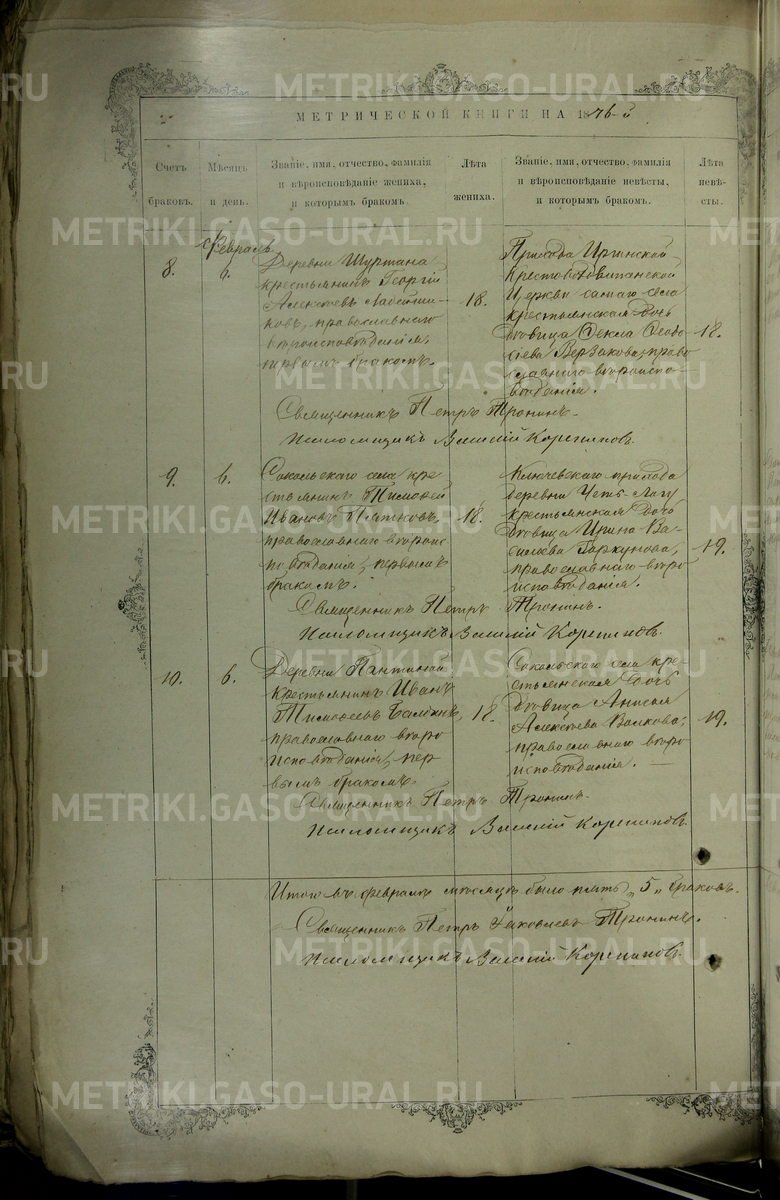 МЕТРИЧЕСКОЙ КНИГИ НА 1876-й
Счетъ
браковъ.
Мѣсяцъ
и день.
Званіе, имя, отчество, фамилія
и вѣроисповѣданіе жениха,
и которымъ бракомъ.
Лѣта
жениха.
Званіе, имя, отчество, фамилія
и вѣроисповѣданіе невѣсты,
и которымъ бракомъ.
Лѣта
невѣ-
сты.
Февраль
8.
6.
Деревни Шуртана
крестьянинъ Георгій
Алексѣевъ
православнаго
вѣроисповѣданія,
первымъ бракомъ.
18.
Прихода Иргинской
Крестовоздвиженской
Церкви самаго села
крестьянская дочь
дѣвица Фекла Ѳеодо-
сіева право-
славнаго вѣроиспо-
вѣданія.
18.
Священникъ Петръ Тронинъ.
Псаломщикъ Василій Корепиновъ.
9.
6.
Сокольскаго села кре-
стьянинъ Тимоѳей
Ивановъ Пятковъ,
православнаго вѣроис-
повѣданія, первымъ
бракомъ.
18.
Ключевскаго прихода
деревни Усть-Лагу
крестьянская дочь
дѣвица Ирина Ва-
силіева Гаркунова,
православнаго вѣро
исповѣданія.
19.
Священникъ Петръ Тронинъ.
Псаломщикъ Василій Корепиновъ.
10.
6.
Деревни
крестьянинъ Иванъ
Тимоѳеевъ
православнаго вѣро
исповѣданія, пер
вымъ бракомъ.
18.
Сокольскаго села кре-
стьянская дочь
дѣвица Анисья
Алексѣева Волкова,
православнаго вѣро
исповѣданія.
19.
Священникъ Петръ Тронинъ.
Псаломщикъ Василій Корепиновъ.
Итого въ февралѣ мѣсяцѣ было пять „5„ браковъ.
Священникъ Петръ Яковлевъ Тронинъ.
Псаломщикъ Василій Корепиновъ.
METRIKI.GASO-URAL.RU